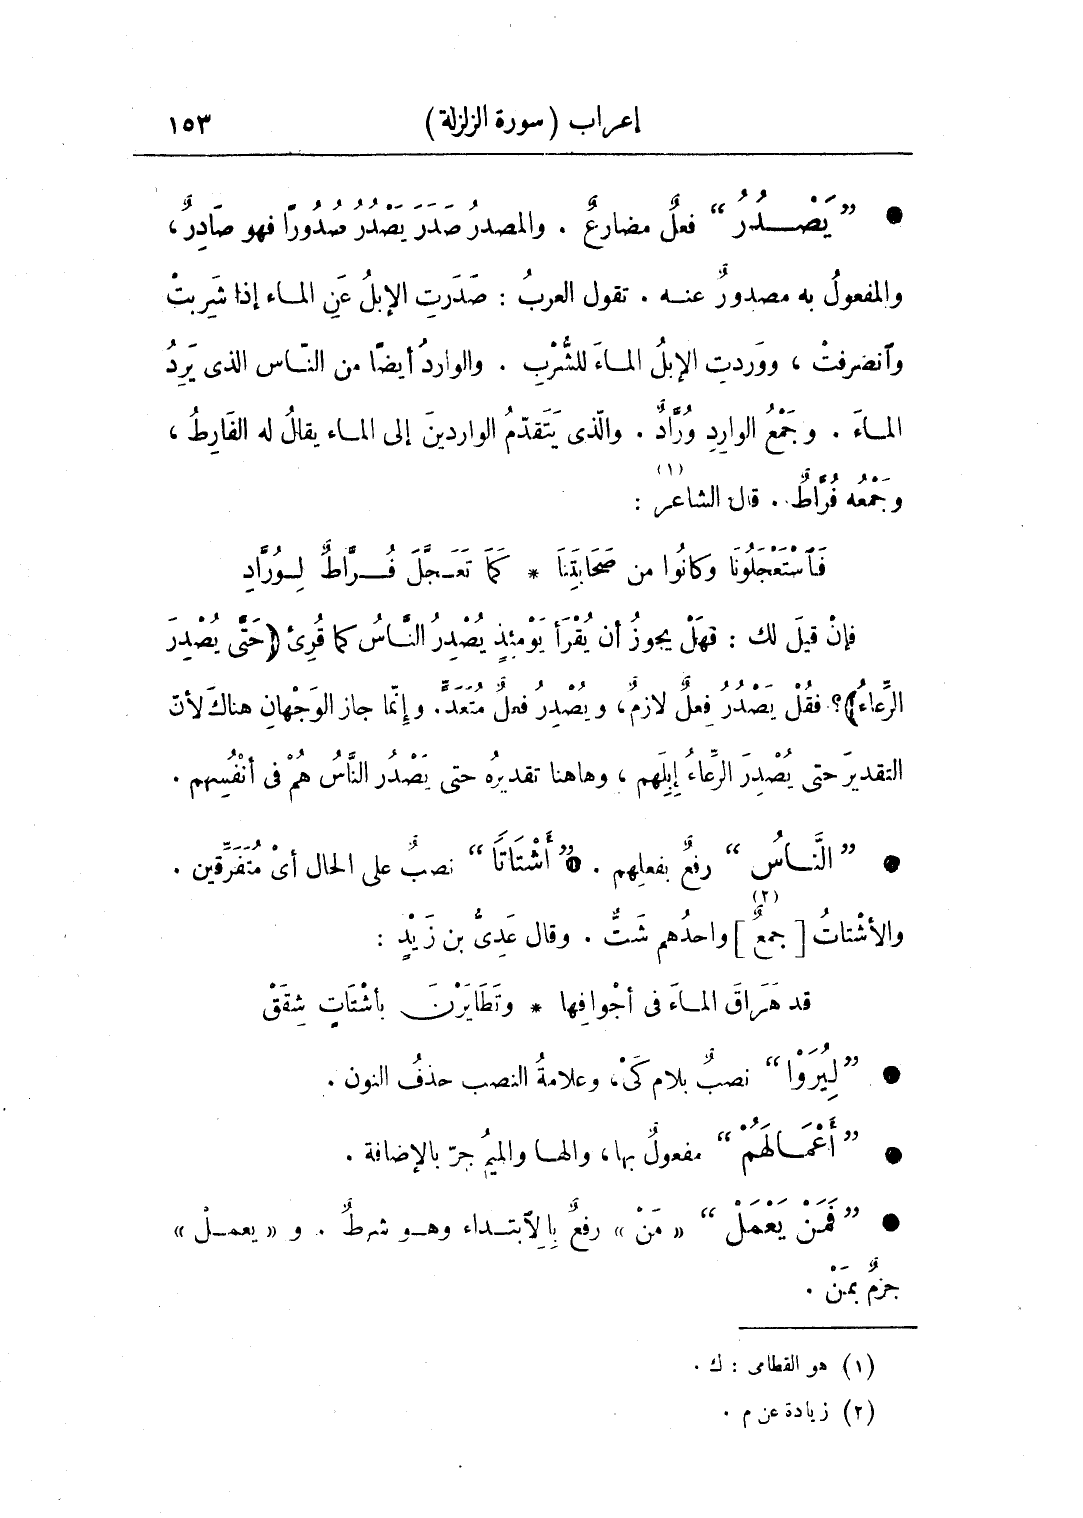 إعراب (سورة الزلزلة) ١٥٣
● ”يَصْـدُرُ“ فعلٌ مضارعٌ . والمصدرُ صَدَرَ يَصْدُرُ صُدُورًا فهو صَادِرٌ ،
والمفعولُ به مصدورٌ عنـه . تقول العربُ : صَدَرَتِ الإبلُ عَنِ المـاء إذا شَرِبتْ
وٱنصرفتْ ، ووَردتِ الإبلُ المـاءَ للشُّرْبِ . والواردُ أيضًا من النّـاس الذى يَرِدُ
المـاءَ . وجَمْعُ الوارِدِ وُرَّادٌ . والّذى يَتَقدّمُ الواردينَ إلى المـاء يقالُ له الفَارِطُ ،
وجَمْعُه فُرَّاطٌ . قال الشاعر (١) :
فَٱسْتَعْجَلُونَا وكانُوا من صَحَابَتِنَا * كَمَا تَعَـجَّلَ فُـرَّاطٌ لِـوُرَّادِ
فإنْ قيلَ لك : فهَلْ يجوزُ أن يُقْرَأ يَوْمئِذٍ يُصْدِرُ النَّاسُ كما قُرِئ ﴿حَتَّى يُصْدِرَ
الرِّعاءُ﴾؟ فقُلْ يَصْدُرُ فِعلٌ لازمٌ ، ويُصْدِرُ فعلٌ مُتَعَدٍّ . وإنّما جاز الوَجْهانِ هناكَ لأنّ
التقديرَ حتى يُصْدِرَ الرِّعاءُ إبِلَهم ، وهاهنا تقديرُه حتى يَصْدُر النَّاسُ هُمْ فى أنْفُسِهم .
● ”النَّـاسُ“ رفعٌ بفعلِهم . ● ”أَشْتَاتًا“ نصبٌ على الحال أىْ مُتَفَرِّقين .
والأشْتاتُ [ جمعٌ (٢) ] واحدُهم شَتٌّ . وقال عَدِىُّ بن زَيْدٍ :
قد هَرَاقَ المـاءَ فى أجْوافِها * وتَطَايَرْنَ بأشْتَاتٍ شِقَقْ
● ”لِيُرَوْا“ نصبٌ بلام كَىْ ، وعلامةُ النصب حذفُ النون .
● ”أَعْمَـالَهُمْ“ مفعولٌ بها ، والهـا والميمُ جرّ بالإضافة .
● ”فَمَنْ يَعْمَلْ“ «مَنْ» رفعٌ بِالِٱبتـداء وهـو شرطٌ . و«يعمـلْ»
جزمٌ بمَنْ .
(١) هو القطامى : ك .
(٢) زيادة عن م .